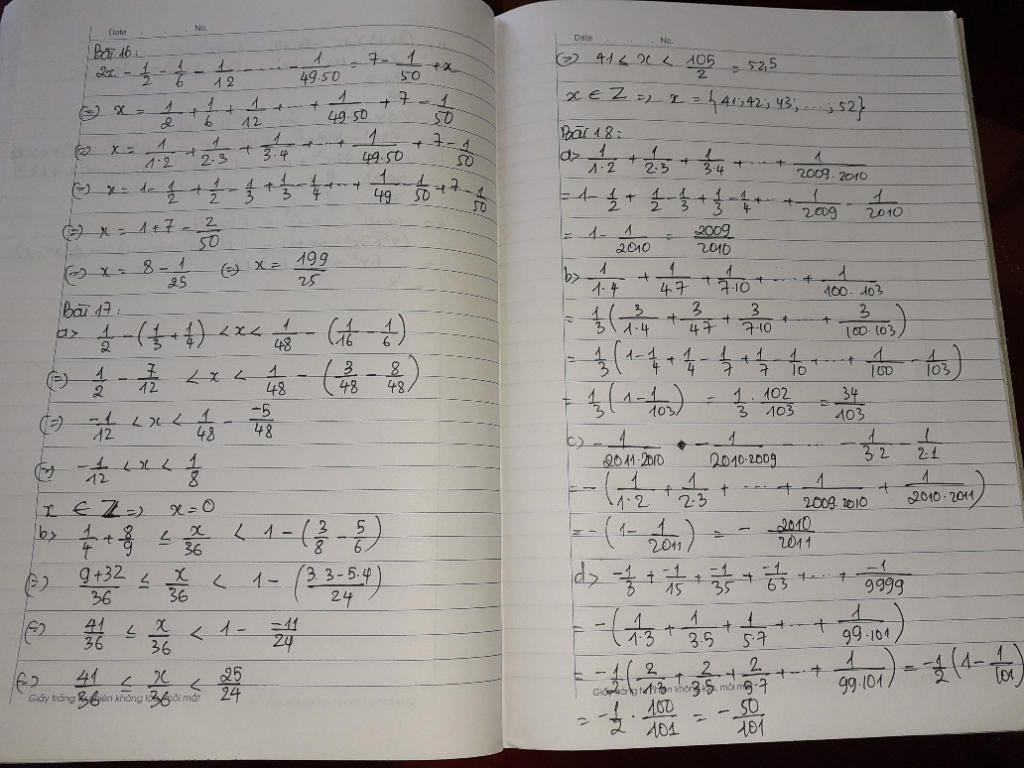 Date . . . . . No.
Bài 16:
2x - 1/2 - 1/6 - 1/12 - ... - 1/49.50 = 7 - 1/50 + x
(=) x = 1/2 + 1/6 + 1/12 + ... + 1/49.50 + 7 - 1/50
(=) x = 1/1.2 + 1/2.3 + 1/3.4 + ... + 1/49.50 + 7 - 1/50
(=) x = 1 - 1/2 + 1/2 - 1/3 + 1/3 - 1/4 + ... + 1/49 - 1/50 + 7 - 1/50
(=) x = 1 + 7 - 2/50
(=) x = 8 - 1/25 (=) x = 199/25
Bài 17:
a> 1/2 - (1/3 + 1/4) < x < 1/48 - (1/16 - 1/6)
(=) 1/2 - 7/12 < x < 1/48 - (3/48 - 8/48)
(=) -1/12 < x < 1/48 - -5/48
(=) -1/12 < x < 1/8
x ∈ Z => x = 0
b> 1/4 + 8/9 ≤ x/36 < 1 - (3/8 - 5/6)
(=) 9+32/36 ≤ x/36 < 1 - (3.3-5.4/24)
(=) 41/36 ≤ x/36 < 1 - -11/24
(=) 41/36 ≤ x/36 < 25/24
Date . . . . . No.
(=) 41 ≤ x < 105/2 = 52,5
x ∈ Z => x = {41; 42; 43; ...; 52}
Bài 18:
a> 1/1.2 + 1/2.3 + 1/3.4 + ... + 1/2009.2010
= 1 - 1/2 + 1/2 - 1/3 + 1/3 - 1/4 + ... + 1/2009 - 1/2010
= 1 - 1/2010 = 2009/2010
b> 1/1.4 + 1/4.7 + 1/7.10 + ... + 1/100.103
= 1/3 (3/1.4 + 3/4.7 + 3/7.10 + ... + 3/100.103)
= 1/3 (1 - 1/4 + 1/4 - 1/7 + 1/7 - 1/10 + ... + 1/100 - 1/103)
= 1/3 (1 - 1/103) = 1/3 . 102/103 = 34/103
c> - 1/2011.2010 - 1/2010.2009 - ... - 1/3.2 - 1/2.1
= - (1/1.2 + 1/2.3 + ... + 1/2009.2010 + 1/2010.2011)
= - (1 - 1/2011) = - 2010/2011
d> -1/3 + -1/15 + -1/35 + -1/63 + ... + -1/9999
= - (1/1.3 + 1/3.5 + 1/5.7 + ... + 1/99.101)
= -1/2 (2/1.3 + 2/3.5 + 2/5.7 + ... + 1/99.101) = -1/2 (1 - 1/101)
= -1/2 . 100/101 = - 50/101